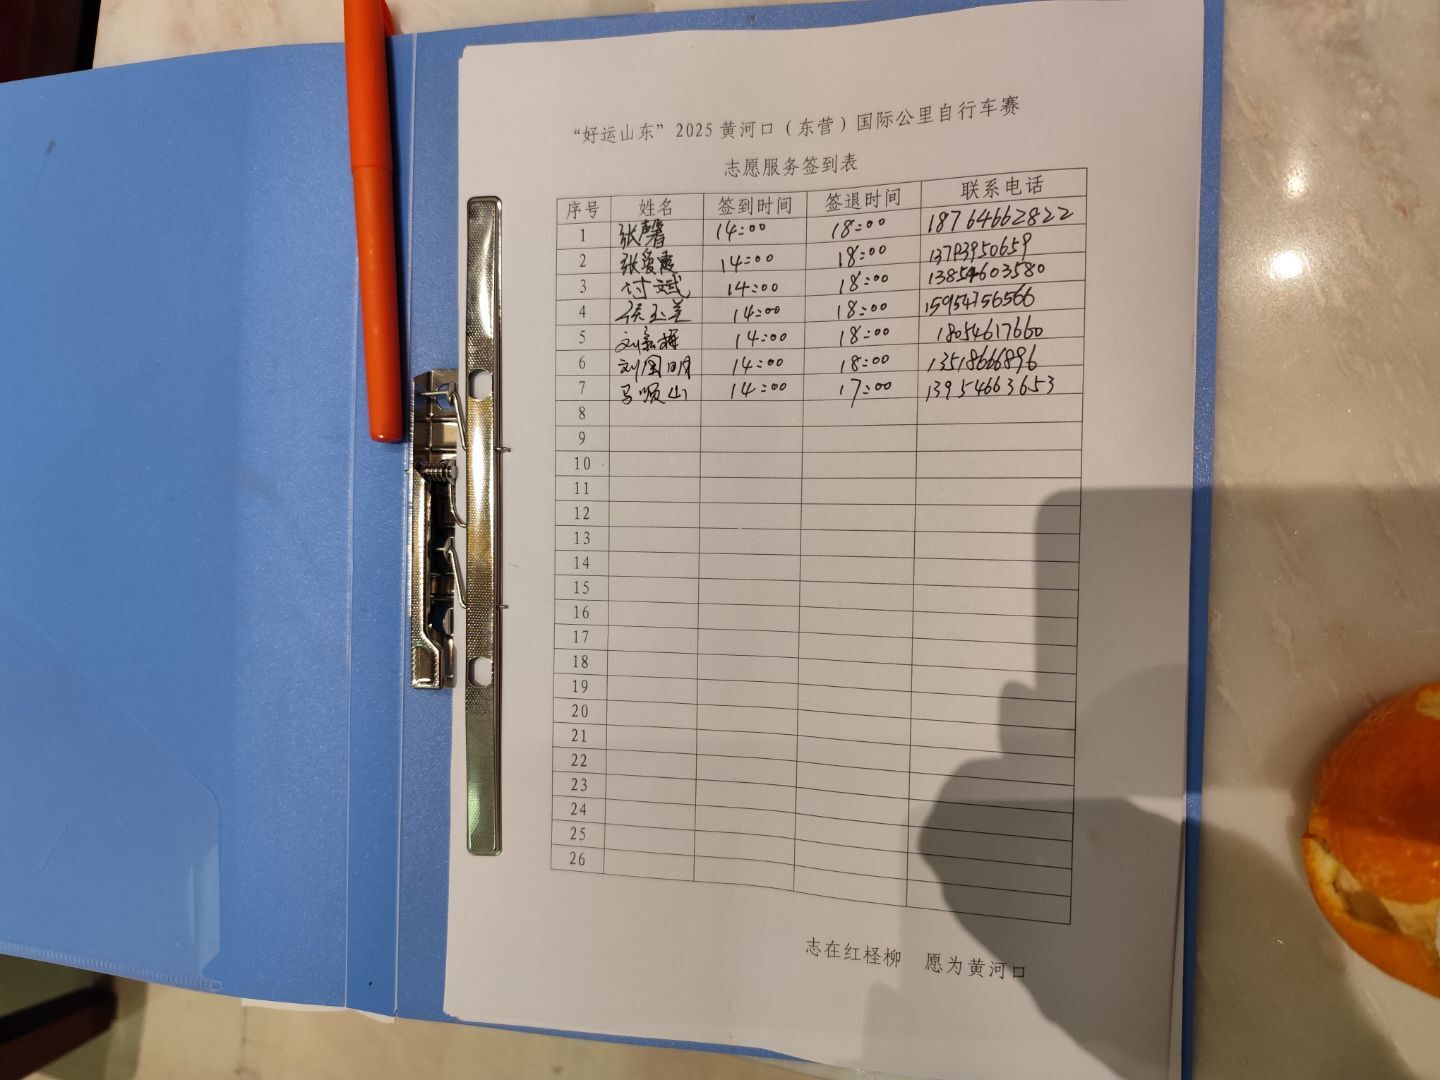 “好运山东”2025黄河口（东营）国际公里自行车赛
志愿服务签到表
序号 姓名 签到时间 签退时间 联系电话
1 张馨 14:00 18:00 18764662822
2 张爱霞 14:00 18:00 13793950659
3 付斌 14:00 18:00 13854603580
4 侯玉兰 14:00 18:00 15954756566
5 刘 14:00 18:00 18054617660
6 刘国明 14:00 18:00 13518666896
7 马顺山 14:00 17:00 13954663653
8
9
10
11
12
13
14
15
16
17
18
19
20
21
22
23
24
25
26
志在红柽柳 愿为黄河口